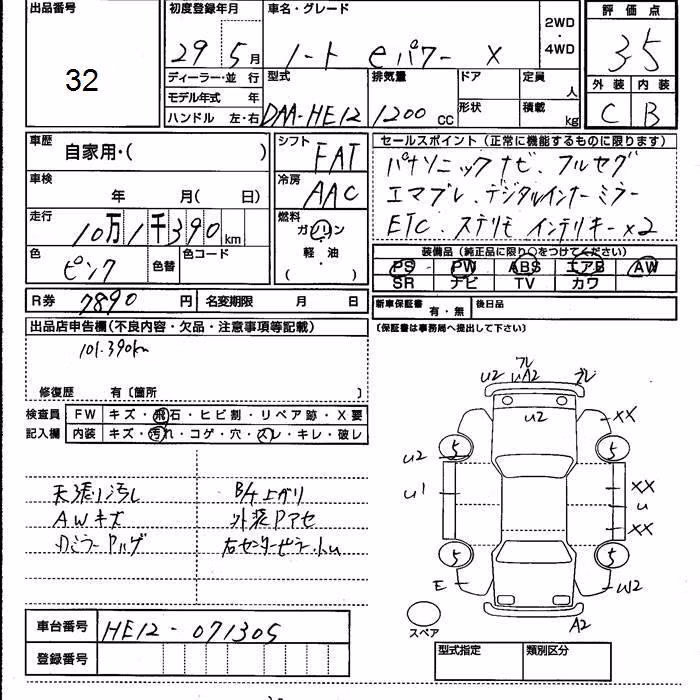 出品番号 初度登録年月 車名・グレード 2WD ・ 4WD 評価点
32 29 5月 ノート eパワー X 3.5
ディーラー・並行 型式 排気量 ドア 定員 人 外装 内装
モデル年式 年 形状 積載 kg C B
ハンドル 左・右 DAA-HE12 1200 cc
車歴 自家用・( ) シフト FAT セールスポイント(正常に機能するものに限ります)
パナソニックナビ、フルセグ
車検 年 月( 日) 冷房 AAC エマブレ、デジタルインナーミラー
走行 10万1千390km 燃料 ガソリン ETC、ステリモ インテリキーx2
軽・油 ( )
色 ピンク 色替 色コード 装備品(純正品に限り○をつけてください)
PS PW ABS エアB AW
SR ナビ TV カワ
R券 7890円 名変期限 月 日 新車保証書 有・無 後日品
出品店申告欄(不良内容・欠品・注意事項等記載) (保証書は事務局へ提出して下さい)
101.390km
修復歴 有〔箇所 〕
検査員 FW キズ・飛石・ヒビ割・リペア跡・X要
記入欄 内装 キズ・汚れ・コゲ・穴・スレ・キレ・破レ
天張り汚し B/4上がり
AWキズ 外装Pアセ
Pハゲ 右センターピラー
車台番号 HE12-071305
登録番号
フレ
U2 A2
U2 XX
5 5
U2
U1 XX
U
XX
5 5
E W2
スペア A2
型式指定 類別区分